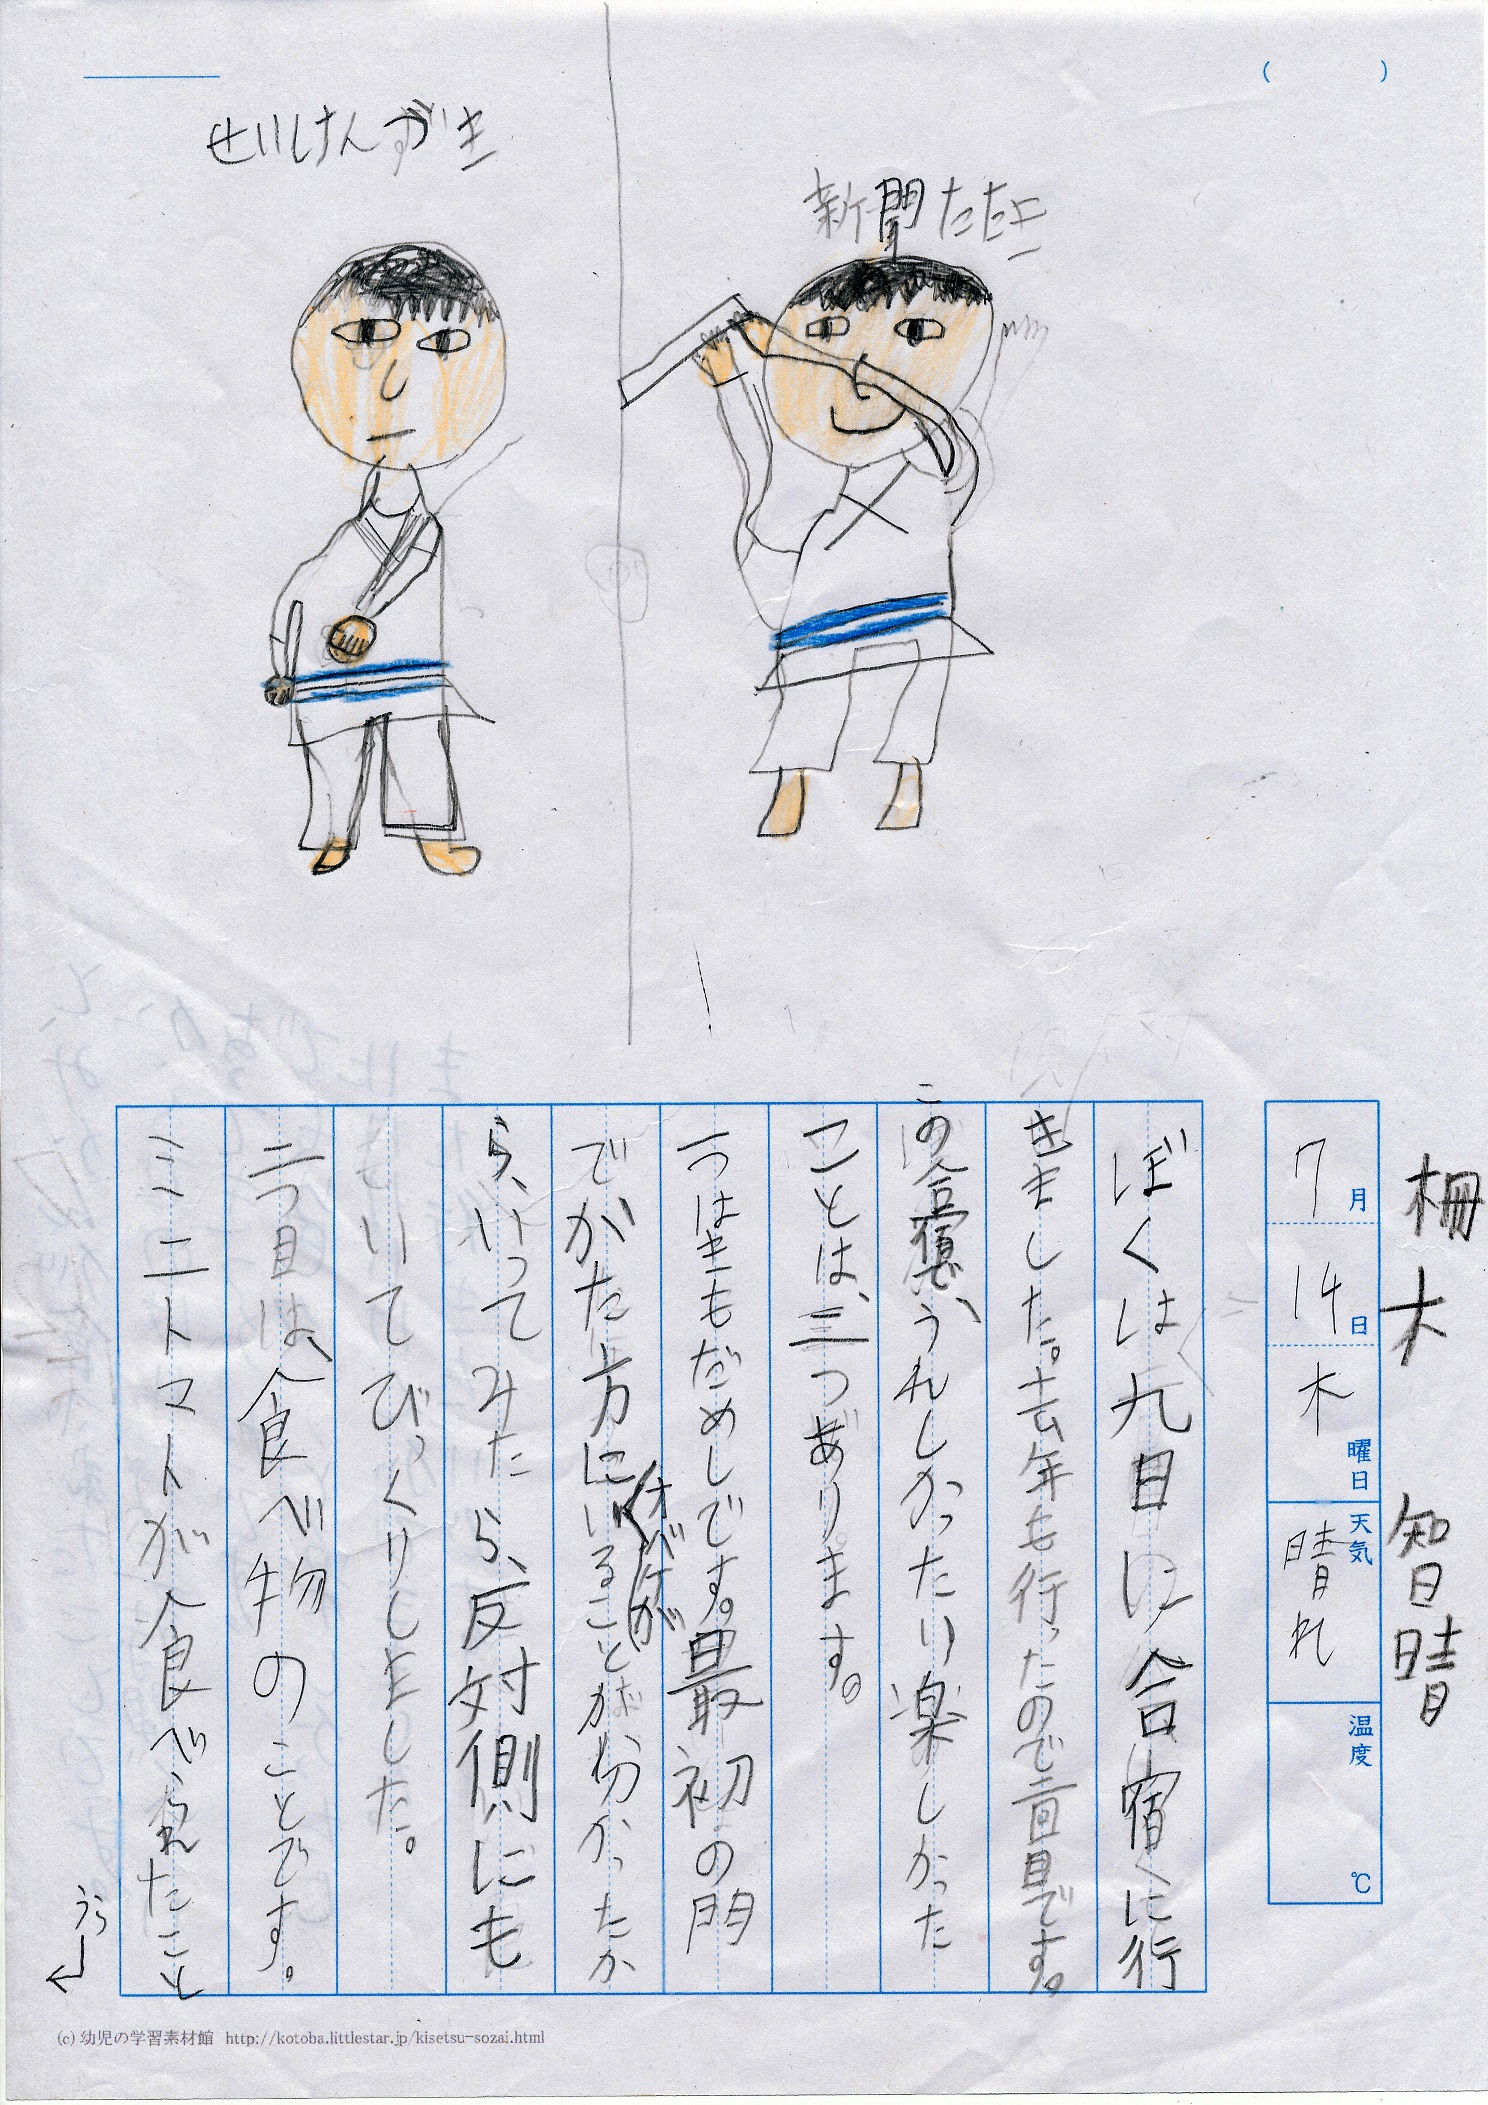 (　　)
せいけんずき
新聞たたこ
柵木 智晴
7月14日木曜日 天気 晴れ 温度 ℃
ぼくは九日に合宿くに行
きました。去年も行ったので二回目です。
この合宿で、うれしかったり楽しかった
ことは、三つあります。
一つはきもだめしです。最初の門
でがた方にいることが分かったか
オバケが
ら、いってみたら、反対側にも
いてびっくりしました。
二つ目は、食べ物のことです。
ミニトマトが食べられたこと
うら
(c) 幼児の学習素材館 http://kotoba.littlestar.jp/kisetsu-sozai.html